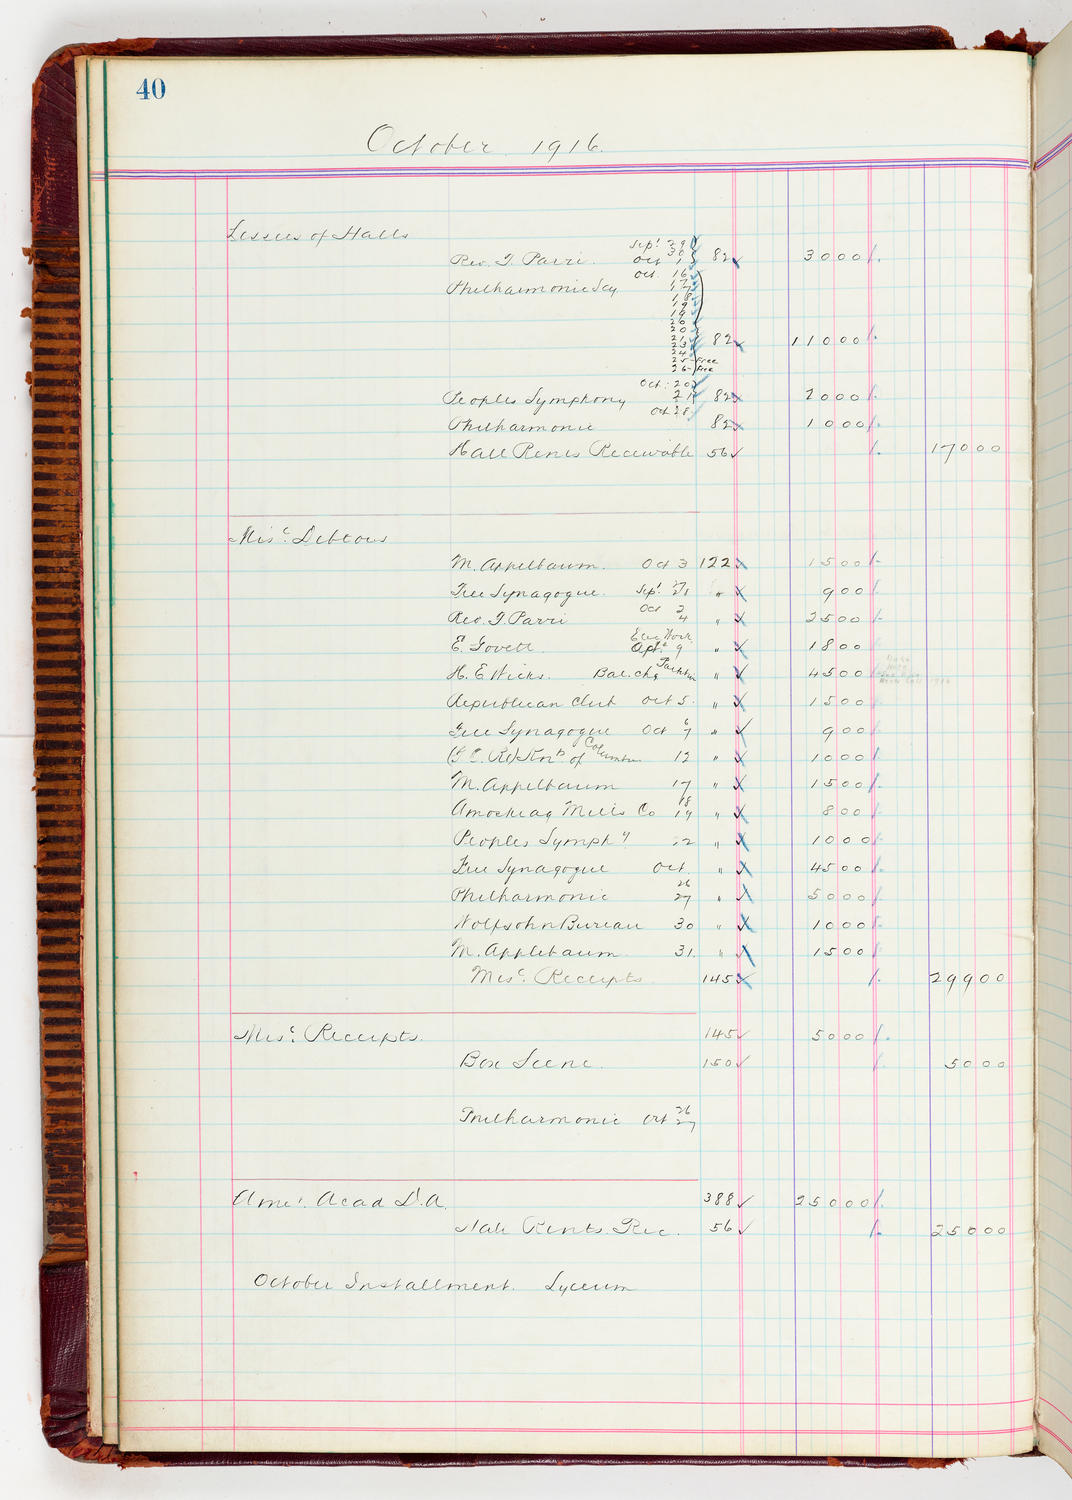 40
October 1916.
Lessees of Halls
Sept. 29
30
Rev. J. Parri. Oct 1 82 3000
Oct. 16
Philharmonic Socy 17
18
19
19
20
20
21
23
24
25-Free
26-free
82 11000
Oct. 20
Peoples Symphony 21 82 2000
Oct 28
Philharmonic 82 1000
Hall Rents Receivable 56 17000
Misc. Debtors
M. Appelbaum. Oct 3 122 1500
Free Synagogue. Sept. 21 " 900
Rev. J. Parri Oct 2 4 " 2500
Elec Work
E. Govett. Apt. 9 " 1800
H. E. Wicks. Bal. chg " 4500
Republican Club Oct 5. " 1500
Free Synagogue Oct 6 7 " 900
Knts of Columbus 12 " 1000
M. Appelbaum 17 " 1500
Amoskeag Mills Co 18 19 " 800
Peoples Symphy 22 " 1000
Free Synagogue Oct. " 4500
Philharmonic 26 27 " 5000
Wolfsohn Bureau 30 " 1000
M. Applebaum 31. " 1500
Misc. Receipts 145 29900
Misc. Receipts. 145 5000
Box Scene. 150 5000
Philharmonic Oct 26 27
Amer. Acad D. A. 388 25000
Hall Rents. Rec. 56 25000
October Installment. Lyceum